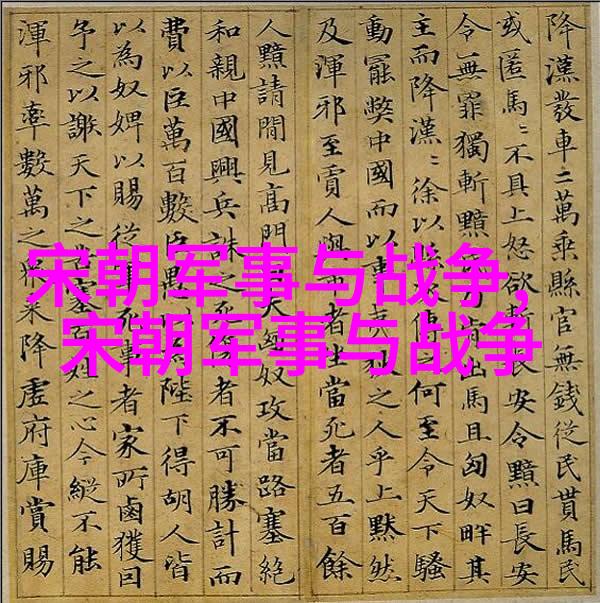 宋朝军事与战争,
宋朝军事与战争
降漢發車二萬乘縣官無錢從民貰馬民
或匿馬〻不具上怒欲長安令黯曰長安
令無罪獨斬黯肯出馬且匈奴畔其
主而降漢〻徐以之何至令天下騷
動罷弊中國而以之人乎上黙然
及渾邪至賈人者坐當死者五百餘
人黯請閒見高門夫匈奴攻當路塞絕
和親中國興兵誅之死者不可勝計而
費以巨萬百數臣愚以為陛下得胡人皆
以為奴婢以賜從死事者家所鹵獲因
予之以謝天下之塞百之心今縱不能
渾邪率數萬之來降虛府庫賞賜